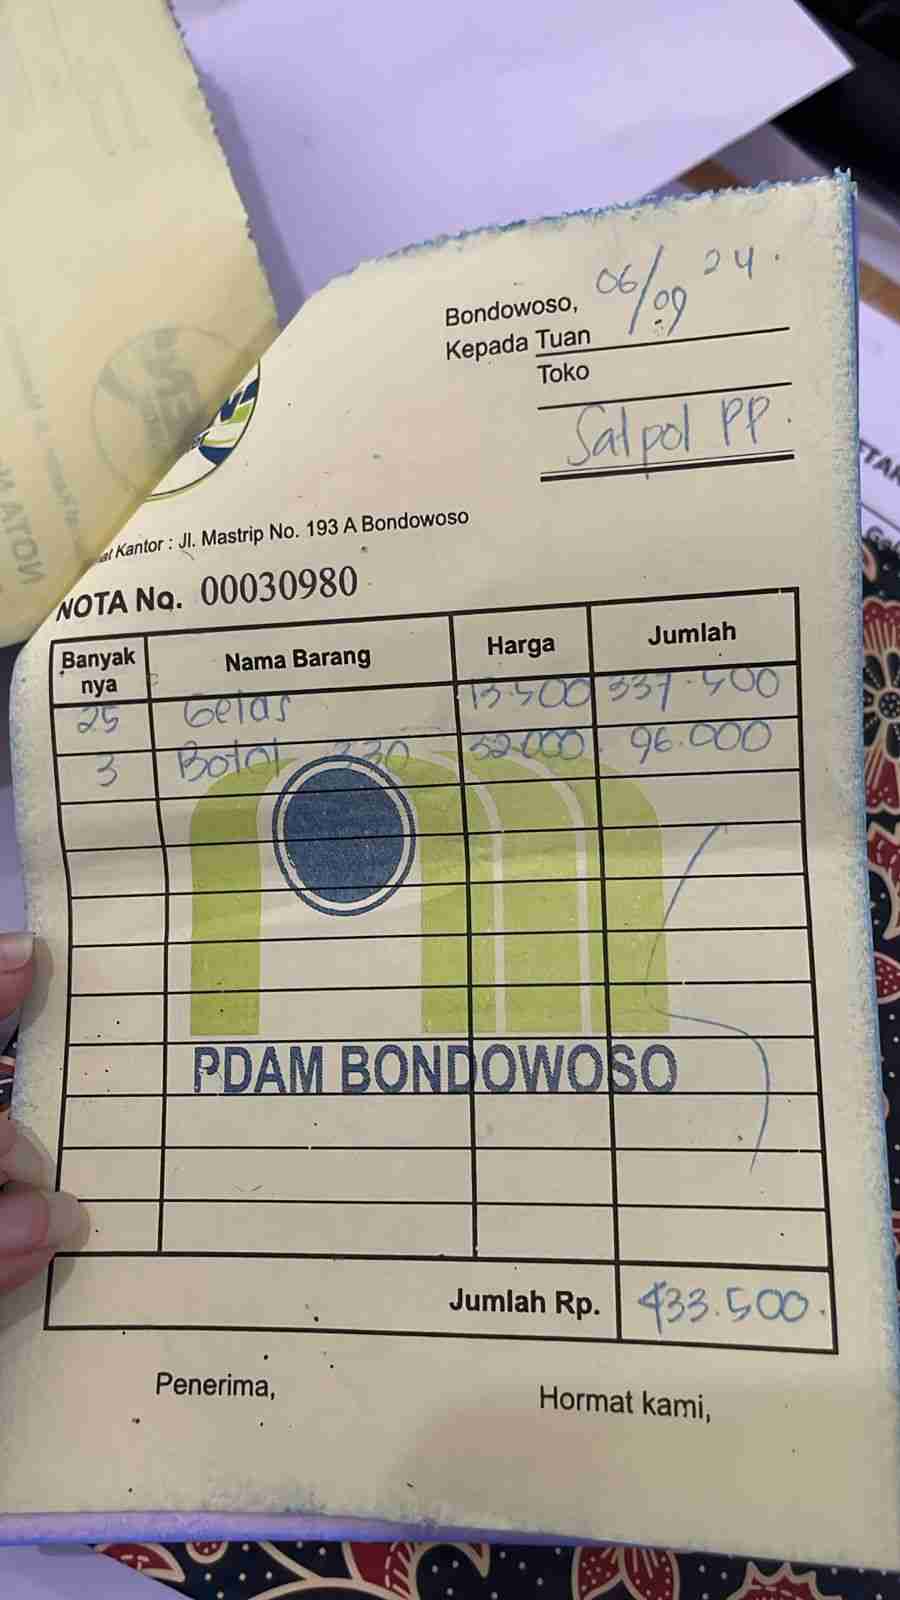 Bondowoso, 06/09 24.
Kepada Tuan
Toko
Satpol PP.
Kantor : Jl. Mastrip No. 193 A Bondowoso
NOTA No. 00030980
Banyak nya Nama Barang Harga Jumlah
25 Gelas 13.500 337.500
3 Botol 330 32.000 96.000
PDAM BONDOWOSO
Jumlah Rp. 433.500.
Penerima, Hormat kami,